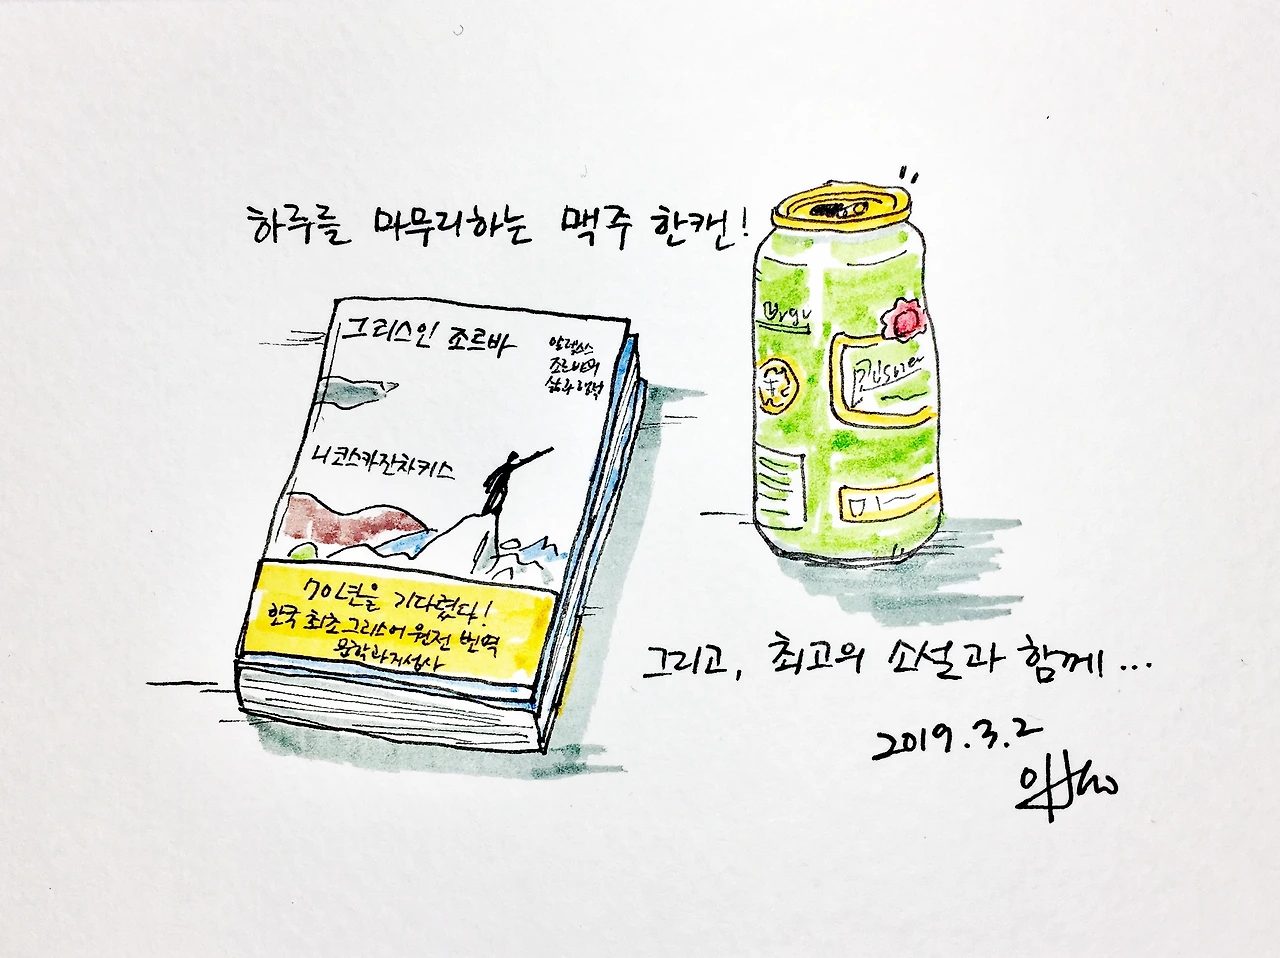 하루를 마무리하는 맥주 한캔!
그리스인 조르바
알렉시스
조르바의
삶과 행적
니코스카잔차키스
70년을 기다렸다!
한국 최초 그리스어 원전 번역
문학과지성사
Pilsner
그리고, 최고의 소설과 함께...
2019.3.2